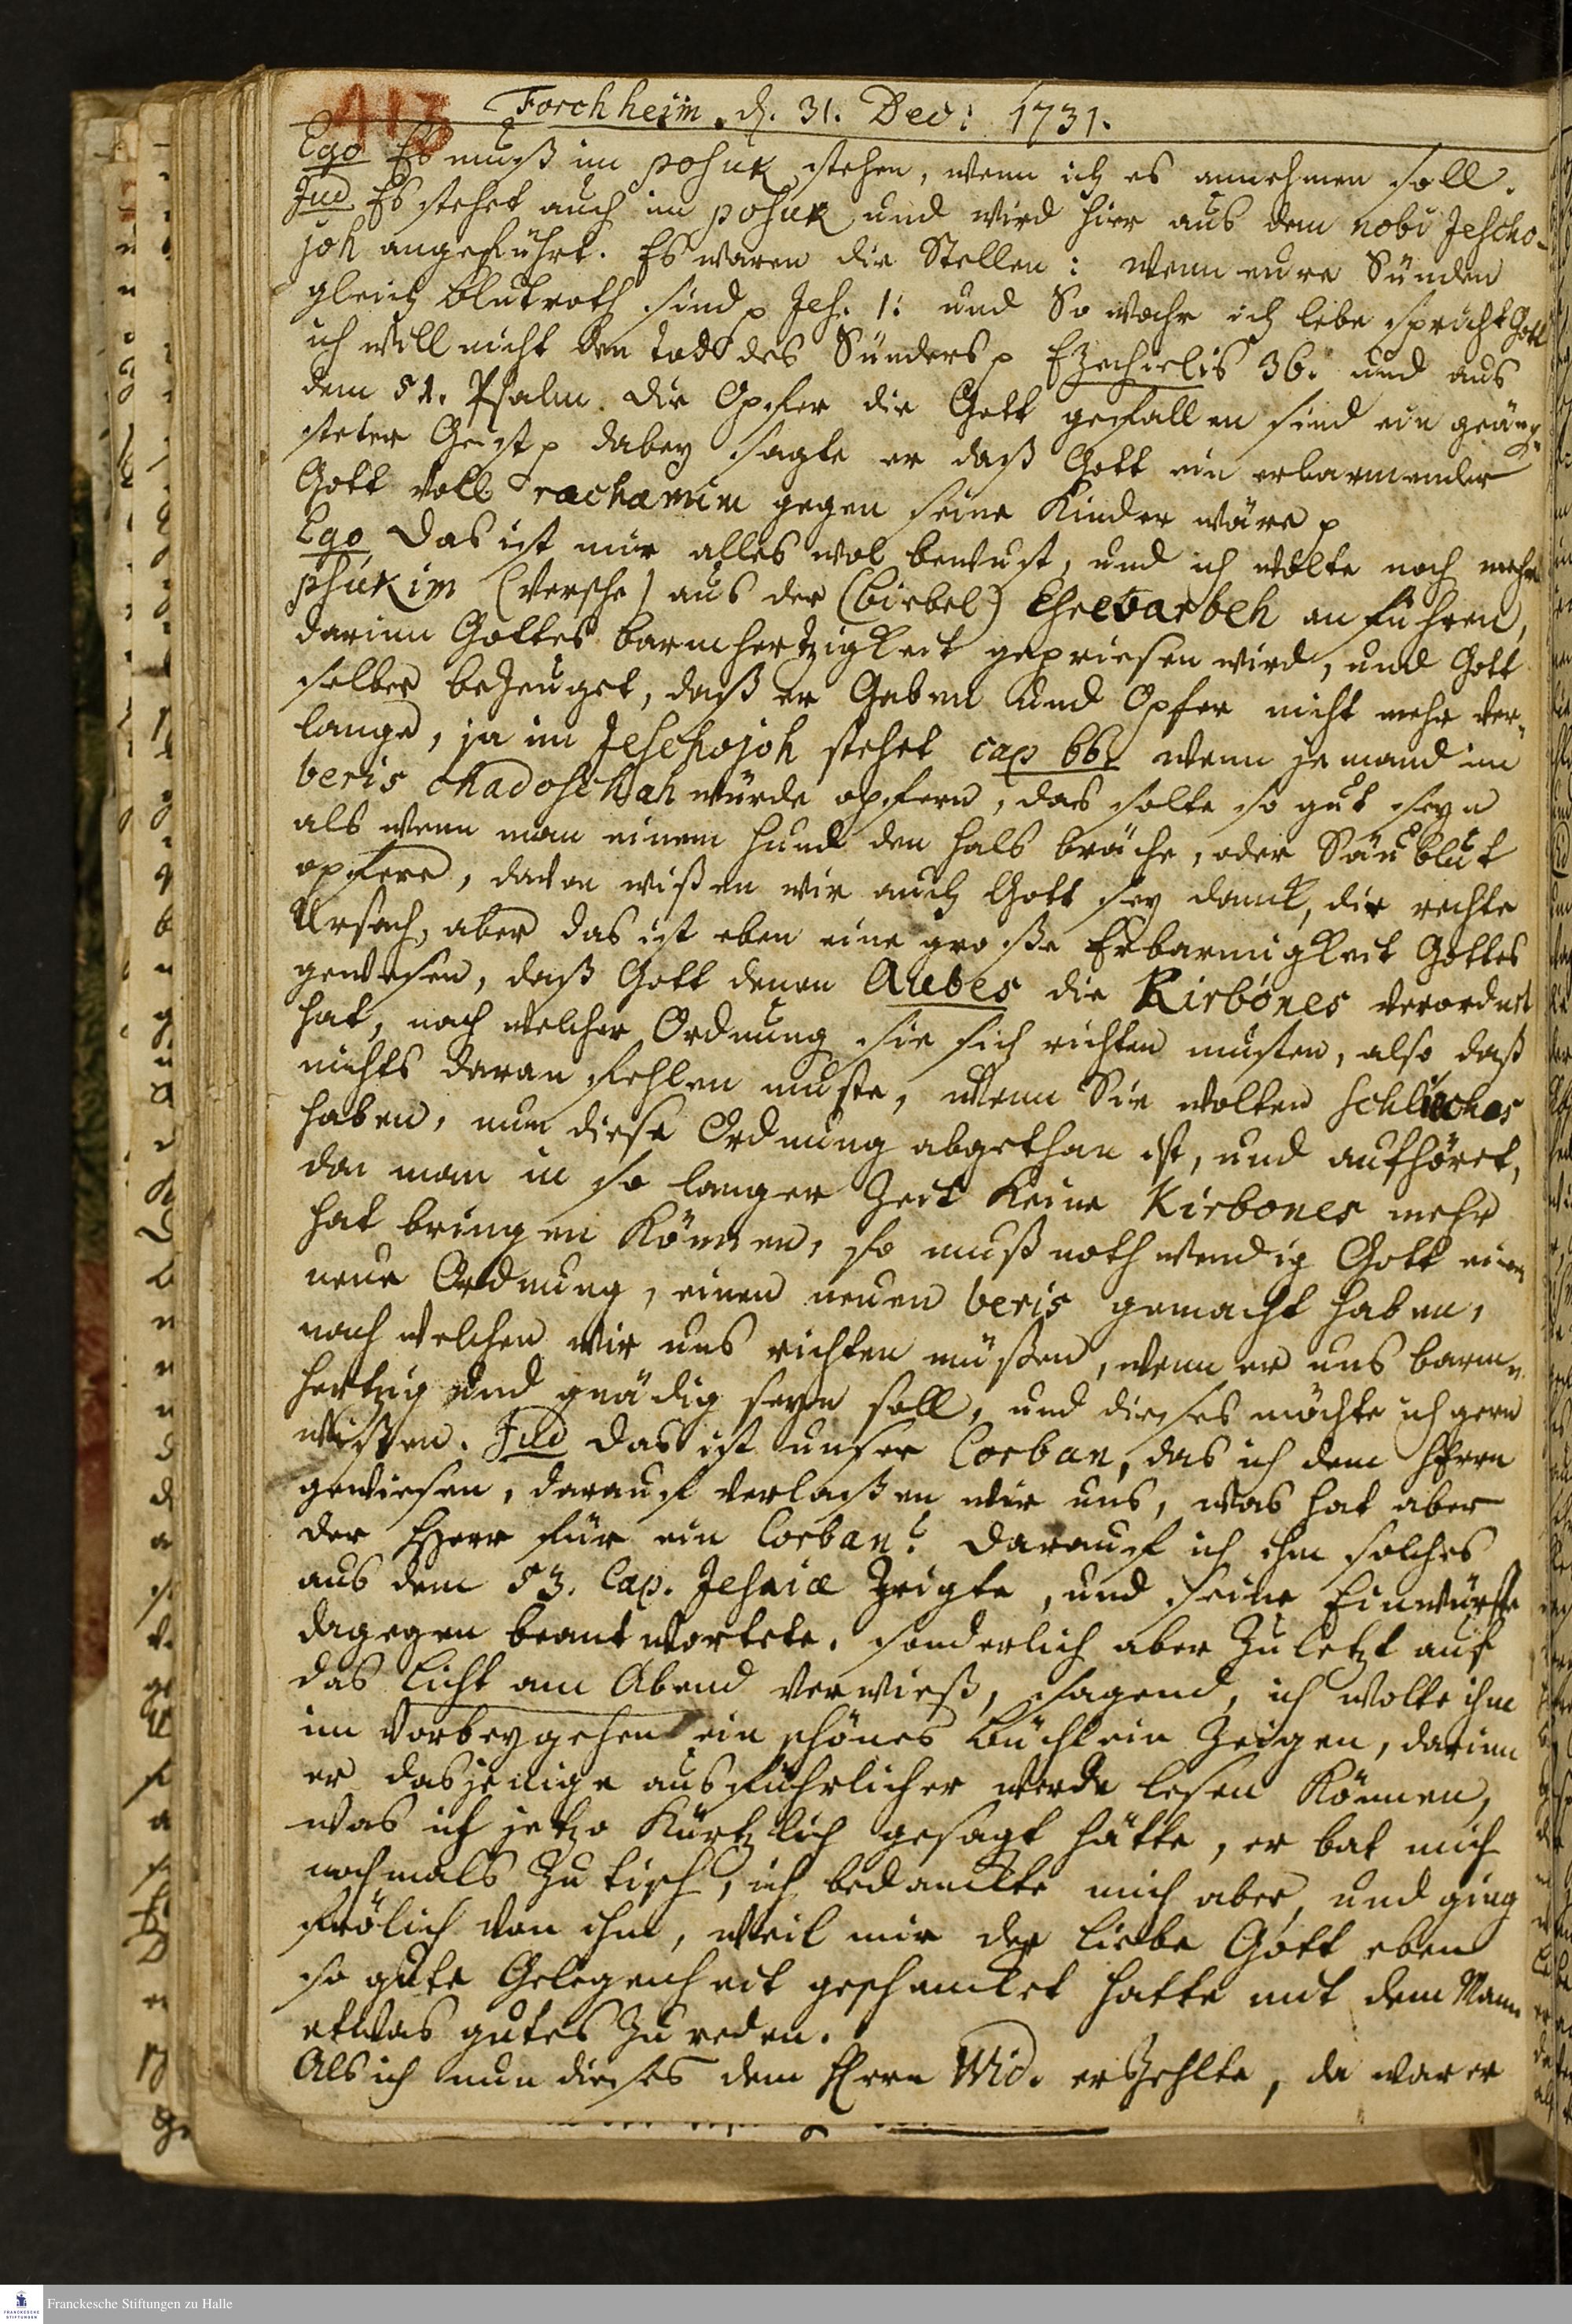 413
Forchheim. d. 31. Dec: 1731.
Ego Es muß im posuk stehen, wenn ich es annehmen soll.
Jud Es stehet auch im posuk und wird hier aus dem nobi Jescho-
joh angeführt. Es waren die Stellen: wenn eure Sünden
gleich blutroth sind p Jes. 1: und So wahr ich lebe spricht Gott
ich will nicht den tod des Sünders p Ezechielis 36. und aus
dem 51. Psalm die Opfer die Gott gefallen sind ein geäng-
steter Geist p dabey sagte er daß Gott ein erbarmender
Gott voll rachamim gegen seine Kinder wäre p
Ego Das ist mir alles wol bewust, und ich wolte noch mehr
psukim (Versche) aus der (biebel) Esrevarbeh anführen,
darinn Gottes barmhertzigkeit gepriesen wird, und Gott
selber bezeuget, daß er Gaben und Opfer nicht mehr ver-
lange, ja im Jeschojoh stehet cap 66. wenn jemand im
beris chadoschah würde opfern, das solte so gut seyn
als wenn man einem hund den hals bräche, oder Säublut
opfere, davon wißen wir auch Gott sey danck, die rechte
Ursach, aber das ist eben eine große Erbarmigkeit Gottes
gewesen, daß Gott denen Aubes die Kirbones verordnet
hat, nach welcher Ordnung sie sich richten musten, also daß
nichts daran fehlen muste, wenn Sie wolten schliechas
haben, nun diese Ordnung abgethan ist, und aufhöret,
da man in so langer Zeit keine Kirbones mehr
hat bringen können, so muß nothwendig Gott eine
neue Ordnung, einen neuen beris gemacht haben,
nach welchen wir uns richten müßen, wenn er uns barm-
hertzig und gnädig seyn soll, und dieses möchte ich gern
wißen. Jud das ist unser Corban, das ich dem Herrn
gewiesen, darauf verlaßen wir uns, was hat aber
der Herr für ein Corban? darauf ich ihm solches
aus dem 53. Cap. Jesaiæ zeigte, und seine Einwürffe
dagegen beantwortete. sonderlich aber zuletzt auf
das Licht am Abend verwieß, sagend, ich wolte ihm
im vorbeygehen ein schönes büchlein zeigen, darinn
er dasjenige ausführlicher werde lesen können,
was ich jetzo kürtzlich gesagt hätte, er bat mich
nochmals zu tisch, ich bedanckte mich aber, und ging
frölich von ihm, weil mir der liebe Gott eben
so gute Gelegenheit geschencket hatte mit dem Mann
etwas gutes zu reden.
Als ich nun dieses dem Herrn Wid. erzehlte, da war er
Franckesche Stiftungen zu Halle